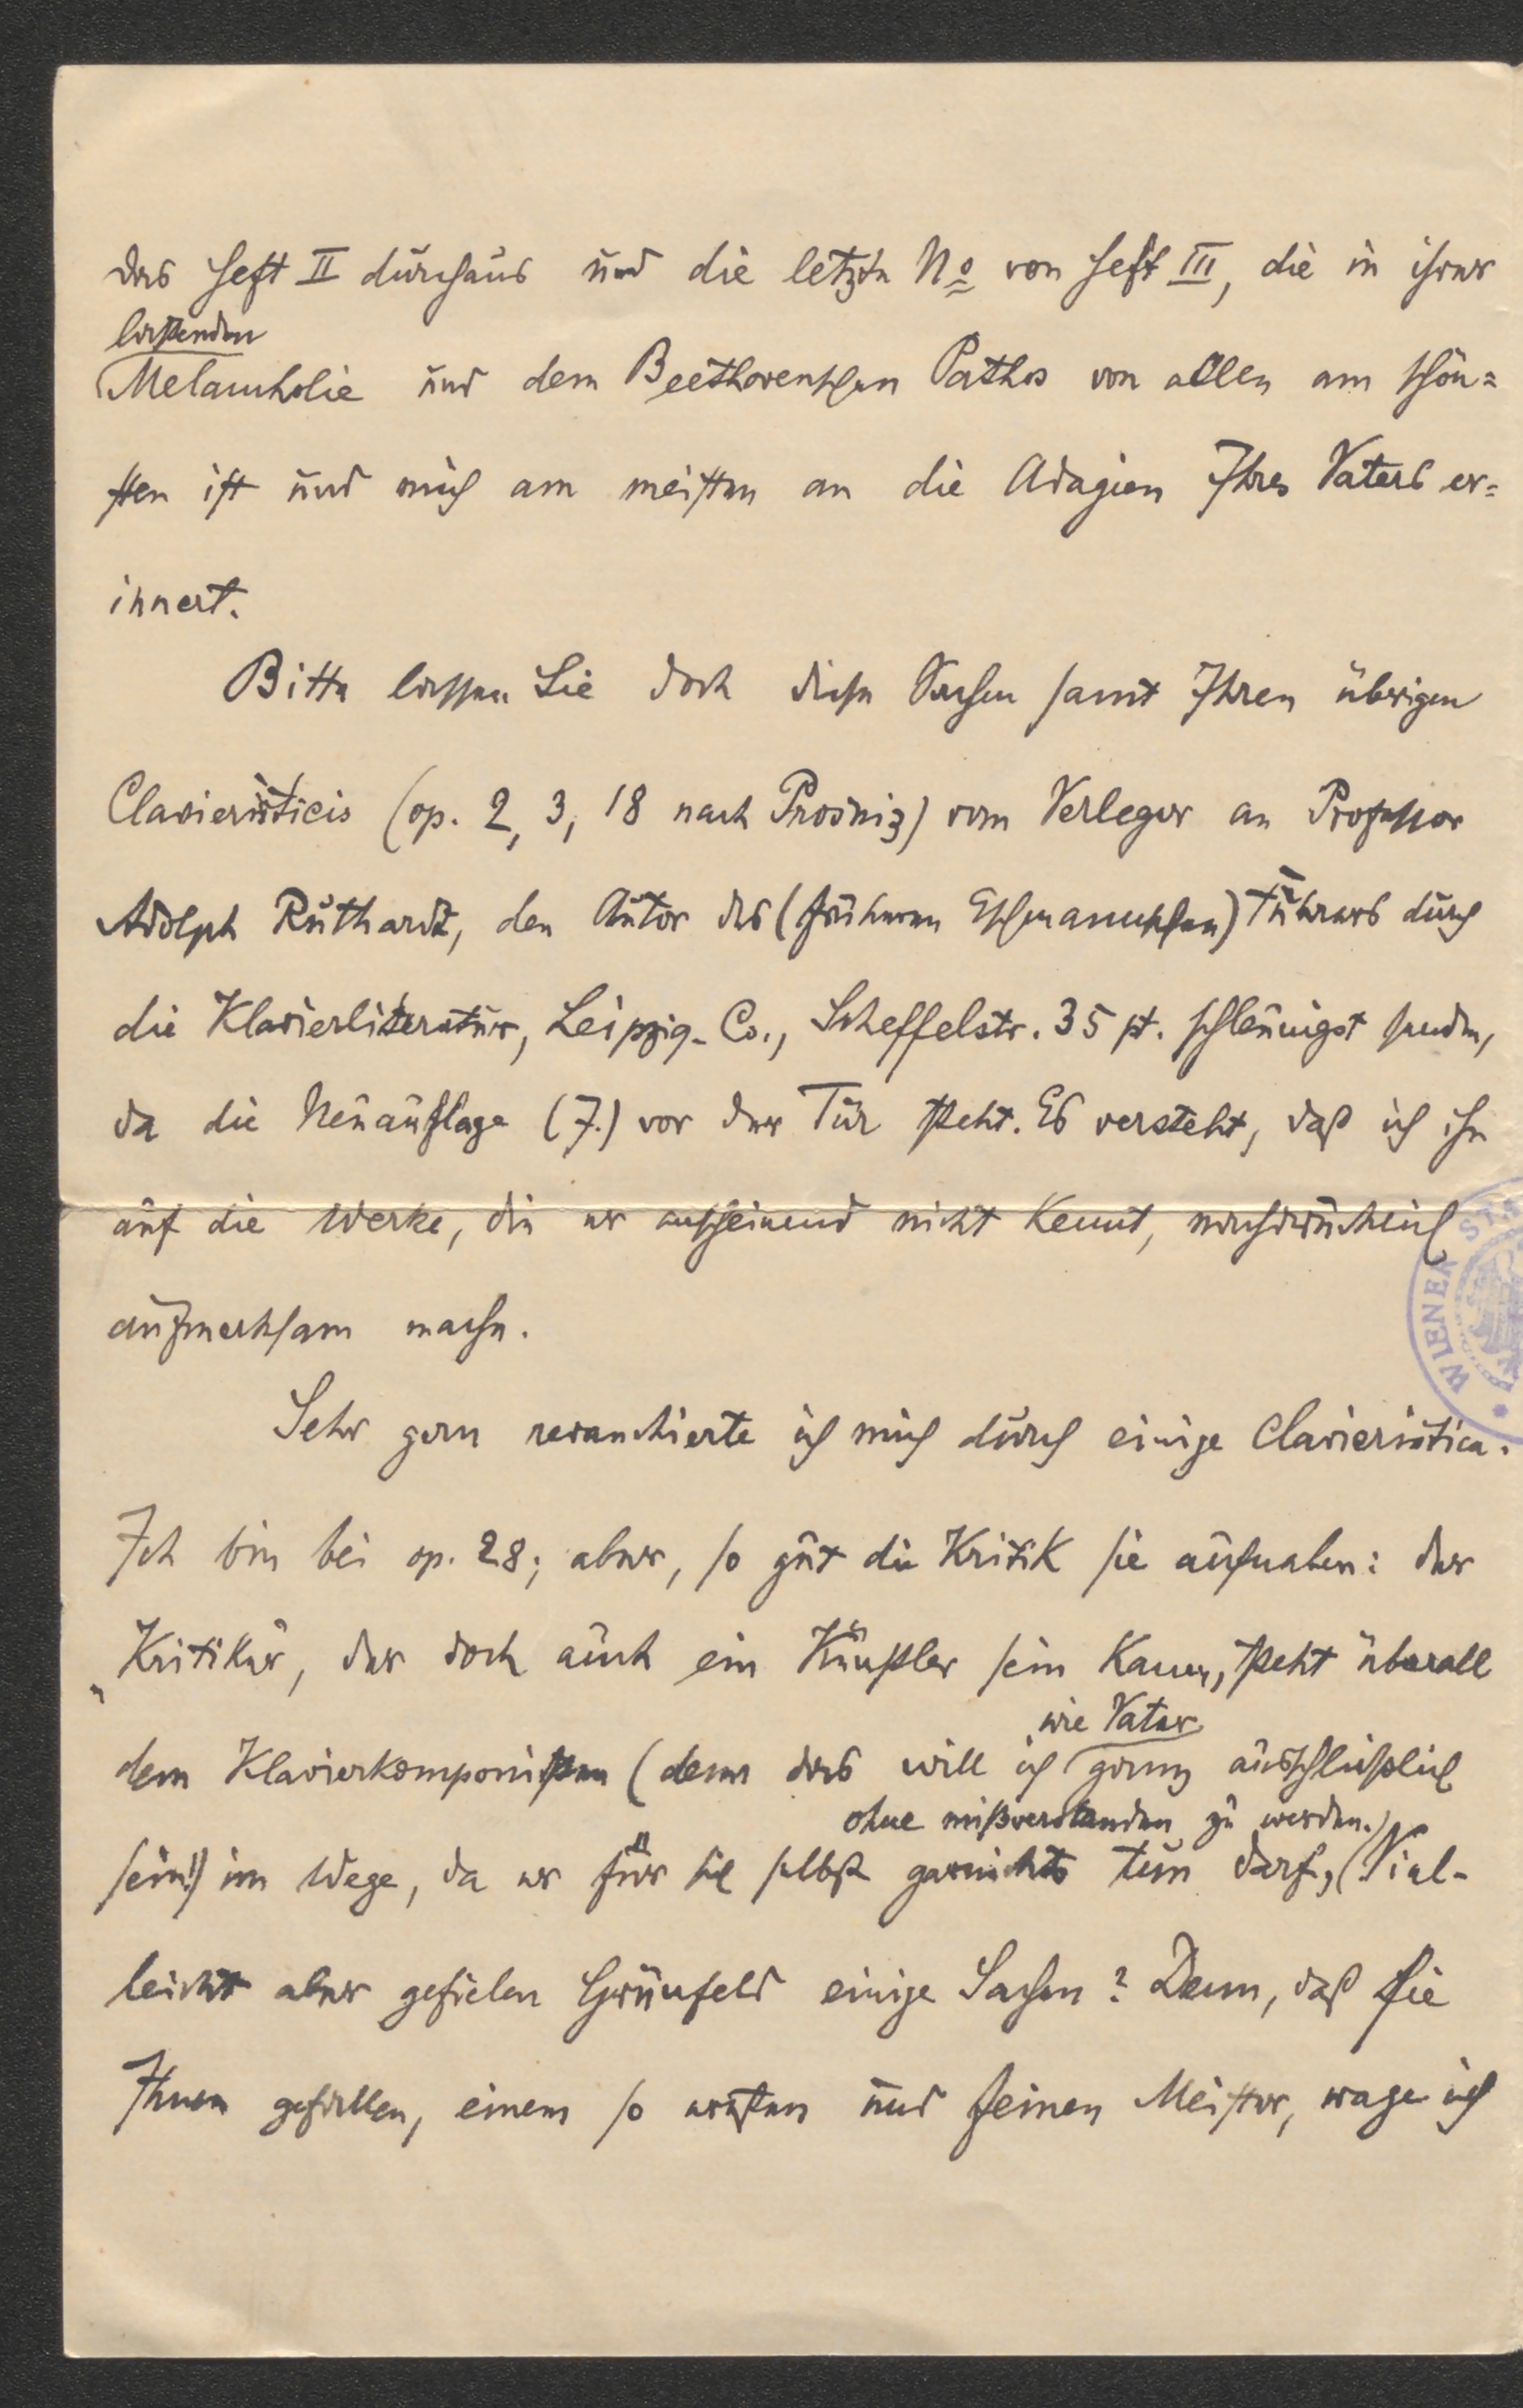 das Heft II durchaus und die letzte No von Heft III, die in ihrer
lastenden
Melancholie und dem Beethovenschen Pathos von allen am schön=
sten ist und mich am meisten an die Adagien Ihres Vaters er=
innert.
Bitte lassen Sie doch diese Sachen samt Ihren übrigen
Clavieristicis (op. 2, 3, 18 nach Prosniz) vom Verleger an Professor
Adolph Ruthardt, den Autor des (früheren Eschmannschen) Führers durch
die Klavierliteratur, Leipzig-Co., Scheffelstr. 35 pt. schleunigst senden,
da die Neuauflage (7.) vor der Tür steht. Es versteht, daß ich ihn
auf die Werke, die er anscheinend nicht kennt, nachdrücklich
aufmerksam mache.
Sehr gern revanchierte ich mich durch einige Clavieristica.
Ich bin bei op. 28; aber, so gut die Kritik sie aufnahm: der
„Kritiker, der doch auch ein Künstler sein kann, steht überall
wie Vater
dem Klavierkomponisten (denn das will ich ganz ausschließlich
ohne mißverstanden zu werden.
sein!) im Wege, da er für sich selbst garnichts tun darf, Viel-
leicht aber gefielen Grünfeld einige Sachen? Denn, daß sie
Ihnen gefielen, einem so ernsten und feinen Meister, wage ich
WIENER ST